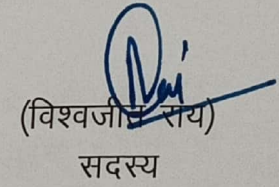 (विश्वजीत राय)
सदस्य